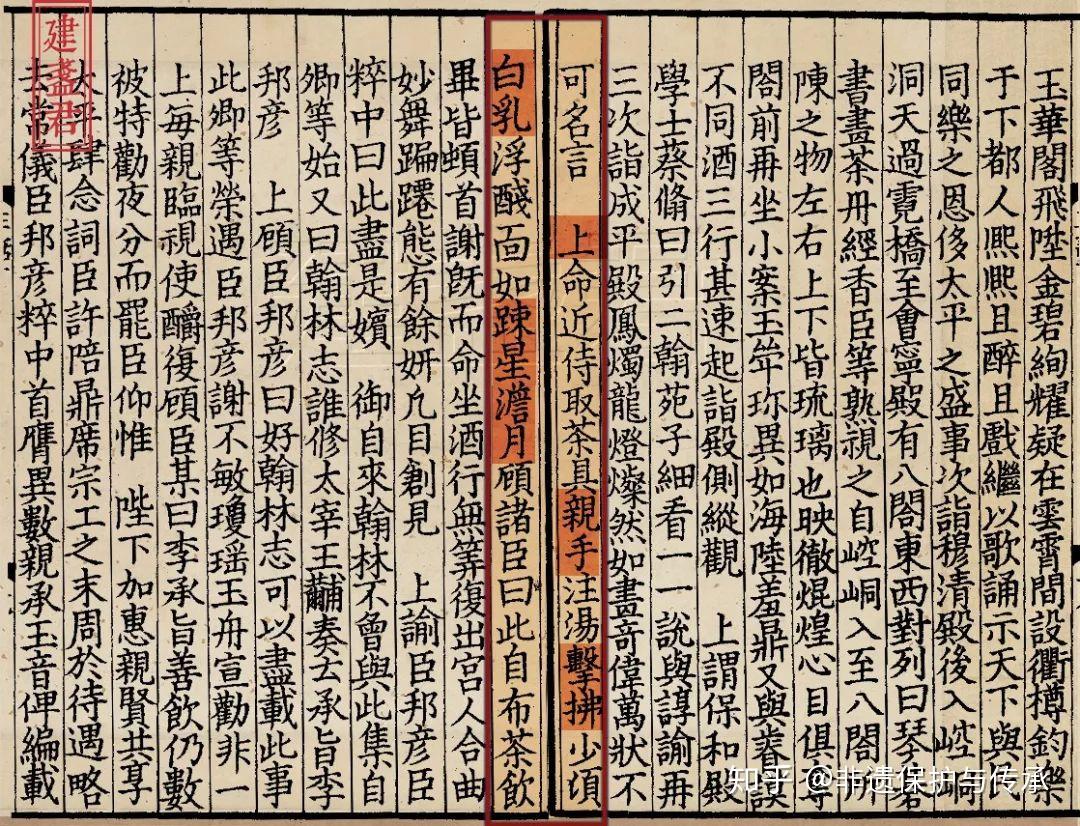 玉華閣飛陞金碧絢耀疑在雲霄間設衢樽鈞樂
于下都人熈熈且醉且戲繼以歌誦示天下與
同樂之恩侈太平之盛事次詣穆清殿後入崆峒
洞天過霓橋至會寧殿有八閣東西對列曰琴
書畫茶丹經香臣等熟視之自崆峒入至八閣所
陳之物左右上下皆琉璃也映徹焜煌心目俱
閣前再坐小案玉斝珎異如海陸羞鼎又與眷謨
不同酒三行甚速起詣殿側縱觀 上謂保和殿
學士蔡絛曰引二翰苑子細看一一說與諄諭再
三次詣成平殿鳳燭龍燈燦然如晝奇偉萬狀不
可名言 上命近侍取茶具親手注湯擊拂少須
白乳浮醆面如疎星澹月顧諸臣曰此自布茶飲
畢皆頓首謝旣而命坐酒行無筭復出宮人合曲
妙舞蹁躚態有餘妍凢目創見 上諭臣邦彥臣
粹中曰此盡是嬪 御自來翰林不曾與此集自
卿等始又曰翰林志誰修太宰王黼奏云承旨李
邦彦 上顧臣邦彥曰好翰林志可以盡載此事
此卿等榮遇臣邦彥謝不敏瓊瑶玉舟宣勸非一
上每親臨視使釂復顧臣某曰李承旨善飲仍數
被特勸夜分而罷臣仰惟 陛下加惠親賢共享
太平肆念詞臣許陪鼎席宗工之末周於待遇略
去常儀臣邦彥粹中首膺異數親承玉音俾編載
建盞君
知乎 @非遗保护与传承